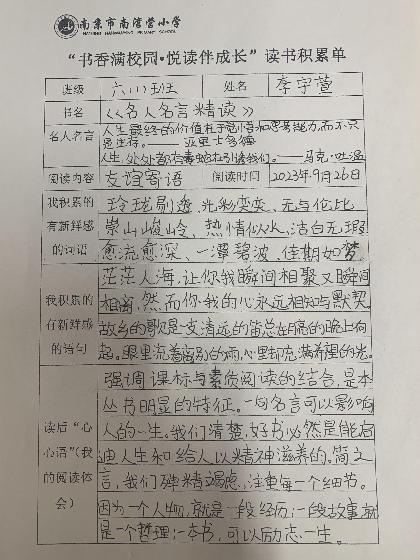 南京市南湾营小学
NANJING NANWANYING PRIMARY SCHOOL
“书香满校园·悦读伴成长”读书积累单
班级 六(11)班 姓名 李宇萱
书名 《名人名言精读》
名人名言 人生最终的价值在于觉醒和思考能力,而不只
是生存。——亚里士多德
人生处处都有毒蛇在引诱我们。——马克·吐温
阅读内容 友谊寄语 阅读时间 2023年9月26日
我积累的 玲珑剔透、光彩奕奕、无与伦比
有新鲜感 崇山峻岭、热情似火、洁白无瑕
的词语 愈流愈深、一潭碧波、佳期如梦
茫茫人海,让你我瞬间相聚又瞬间
我积累的 相离,然而你我的心永远相知与默契
有新鲜感 故乡的歌是一支清远的笛总在有月亮的晚上响
的语句 起。眼里流着离别的雨,心里却充满希望的光。
强调课标与素质阅读的结合,是本
丛书明显的特征。一句名言可以影响
读后“心 人的一生。我们清楚,好书必然是能启
心语”(我 迪人生和给人以精神滋养的。简之
的阅读体 言,我们殚精竭虑,注重每一个细节。
会) 因为一个人物,就是一段经历;一段故事就
是一个哲理;一本书,可以励志一生。